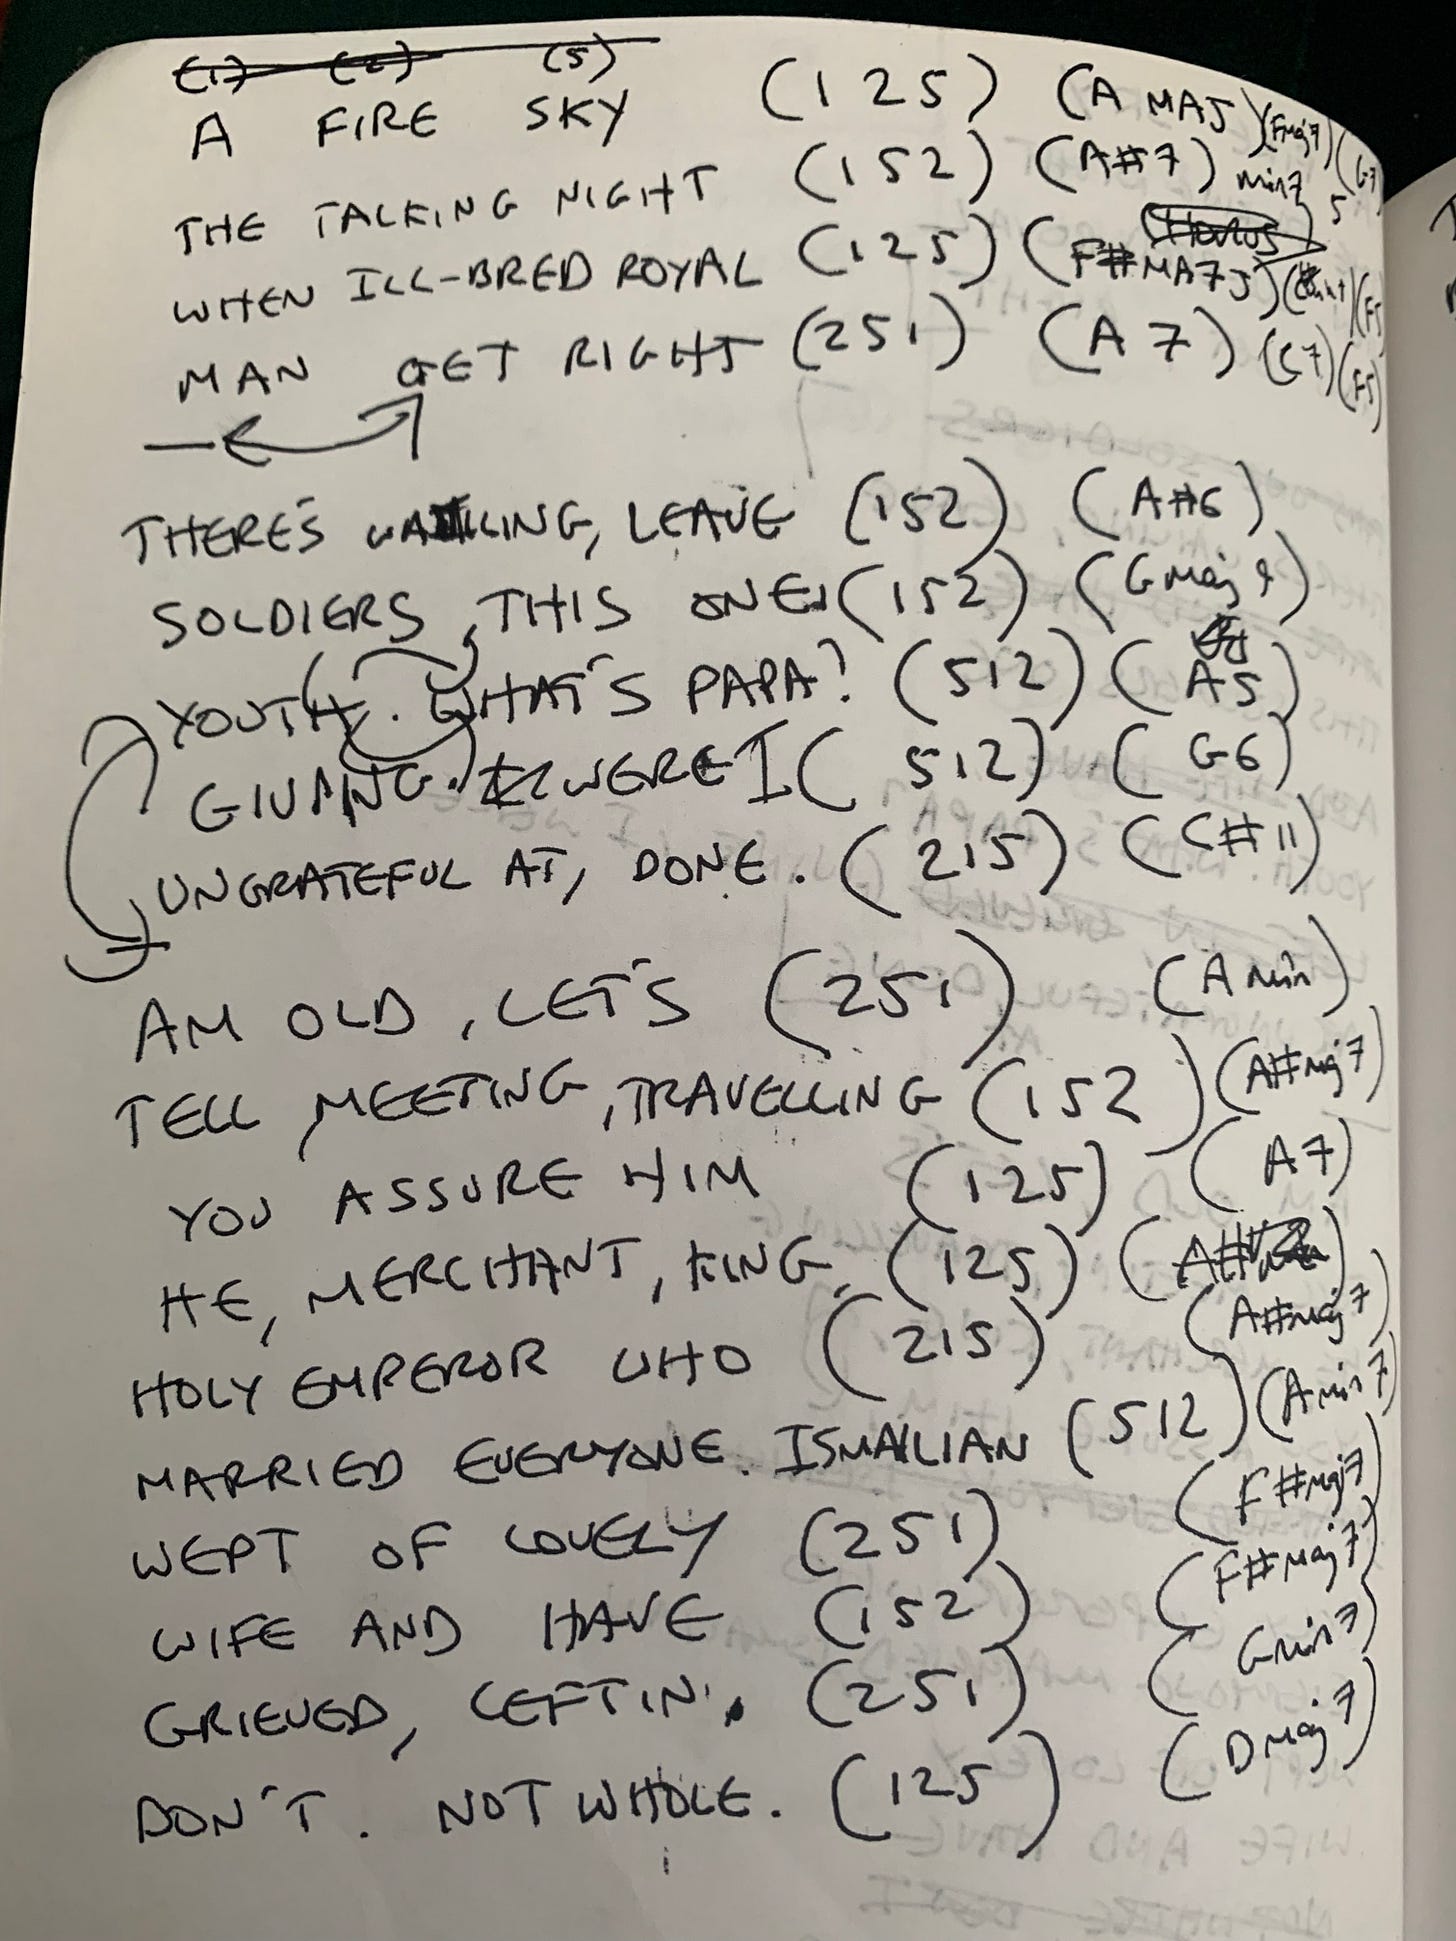 (1) (2) (5)
A FIRE SKY (1 2 5) (A MAJ) (Fmaj7) (G7)
THE TALKING NIGHT (1 5 2) (A#7) min7 5
WHEN ILL-BRED ROYAL (1 2 5) (F#MA7J) (F5)
MAN GET RIGHT (2 5 1) (A 7) (C7) (F5)
THERE'S LING, LEAVE (1 5 2) (A#6)
SOLDIERS, THIS ONE (1 5 2) (G maj 9)
YOUTH. WHAT'S PAPA? (5 1 2) (A5)
GIVING. WERE I (5 1 2) (G6)
UNGRATEFUL AT, DONE. (2 1 5) (C#11)
AM OLD, LET'S (2 5 1) (A min)
TELL, MEETING, TRAVELLING (1 5 2) (A#maj7)
YOU ASSURE HIM (1 2 5) (A7)
HE, MERCHANT, KING, (1 2 5)
HOLY EMPEROR WHO (2 1 5) (A#maj7)
MARRIED EVERYONE. ISMAILIAN (5 1 2) (A min 7)
WEPT OF LOVELY (2 5 1) (F#maj7)
WIFE AND HAVE (1 5 2) (F#maj7)
GRIEVED, LEFT IN, (2 5 1) (Gmin7)
DON'T. NOT WHOLE. (1 2 5) (D maj7)